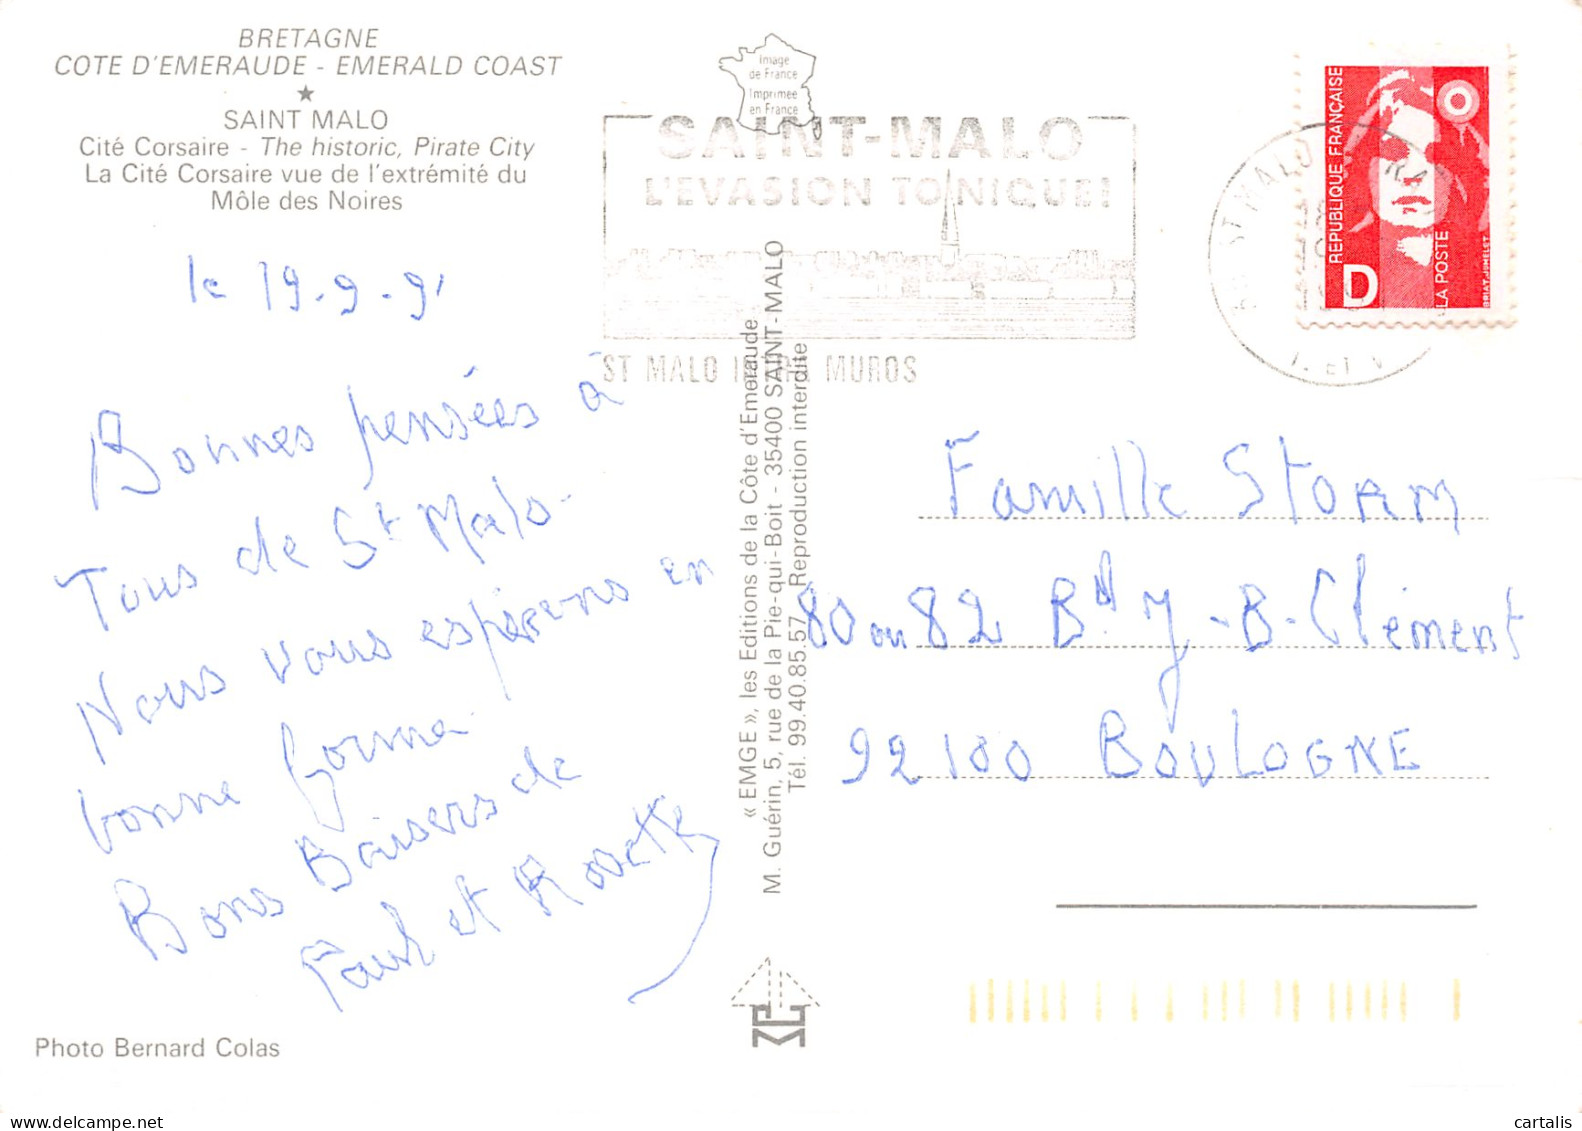 BRETAGNE
COTE D'EMERAUDE - EMERALD COAST
SAINT MALO
Cité Corsaire - The historic, Pirate City
La Cité Corsaire vue de l'extrémité du
Môle des Noires
Image
de France
Imprimée
en France
SAINT-MALO
L'EVASION TONIQUE!
ST MALO MUROS
ST MALO
I. ET V
REPUBLIQUE FRANÇAISE
D
LA POSTE
BRIAT. JUMELET
le 19.9.91
Bonnes pensées à
Tous de St Malo.
Nous vous espérons en
bonne forme.
Bons Baisers de
Paul et
« EMGE », les Editions de la Côte d'Emeraude
M. Guérin, 5, rue de la Pie-qui-Boit - 35400 SAINT-MALO
Tél. 99.40.85.57 Reproduction interdite
Famille STORM
80 ou 82 Bd J-B-Clément
92100 BOULOGNE
Photo Bernard Colas
delcampe.net
cartalis